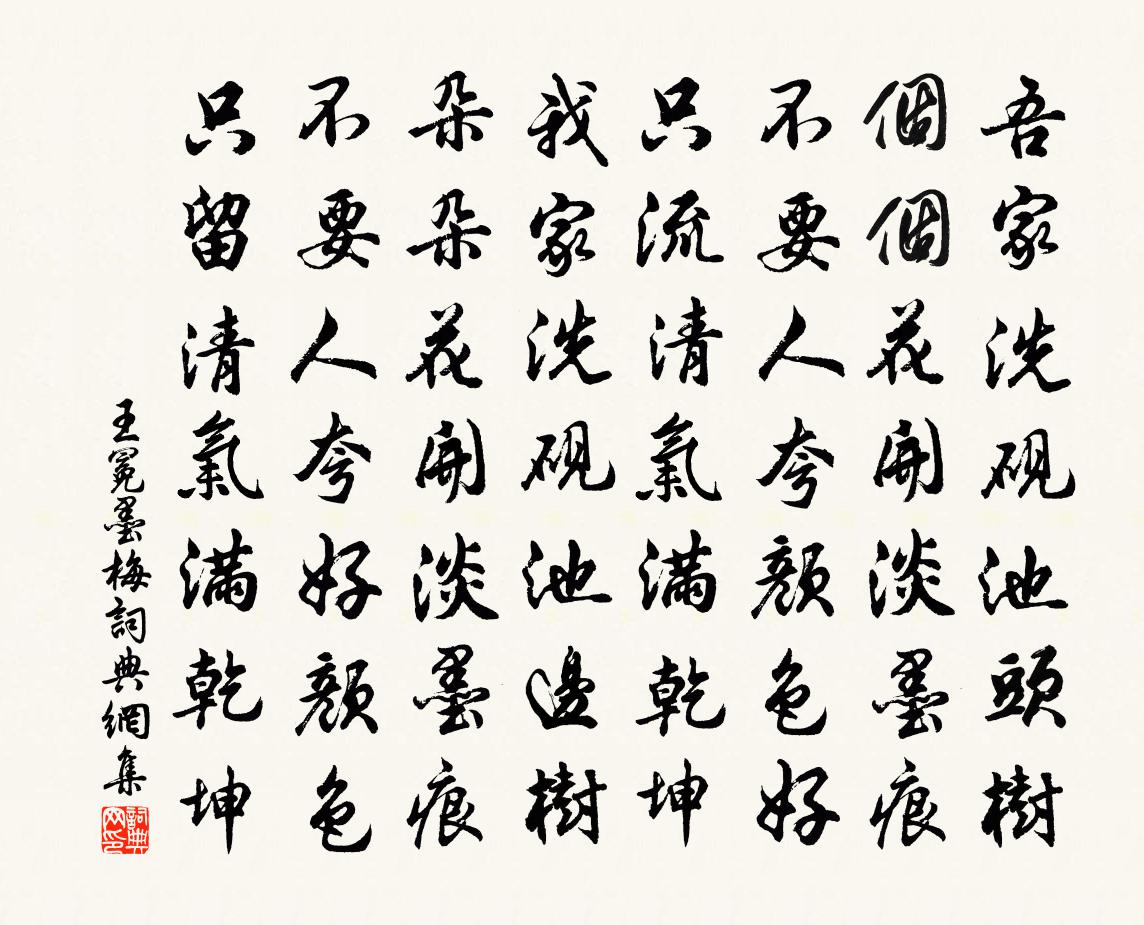 吾家洗硯池頭樹
個個花開淡墨痕
不要人夸顏色好
只流清氣滿乾坤
我家洗硯池邊樹
朵朵花開淡墨痕
不要人夸好顏色
只留清氣滿乾坤
王冕墨梅詞典網集
詞典
网印